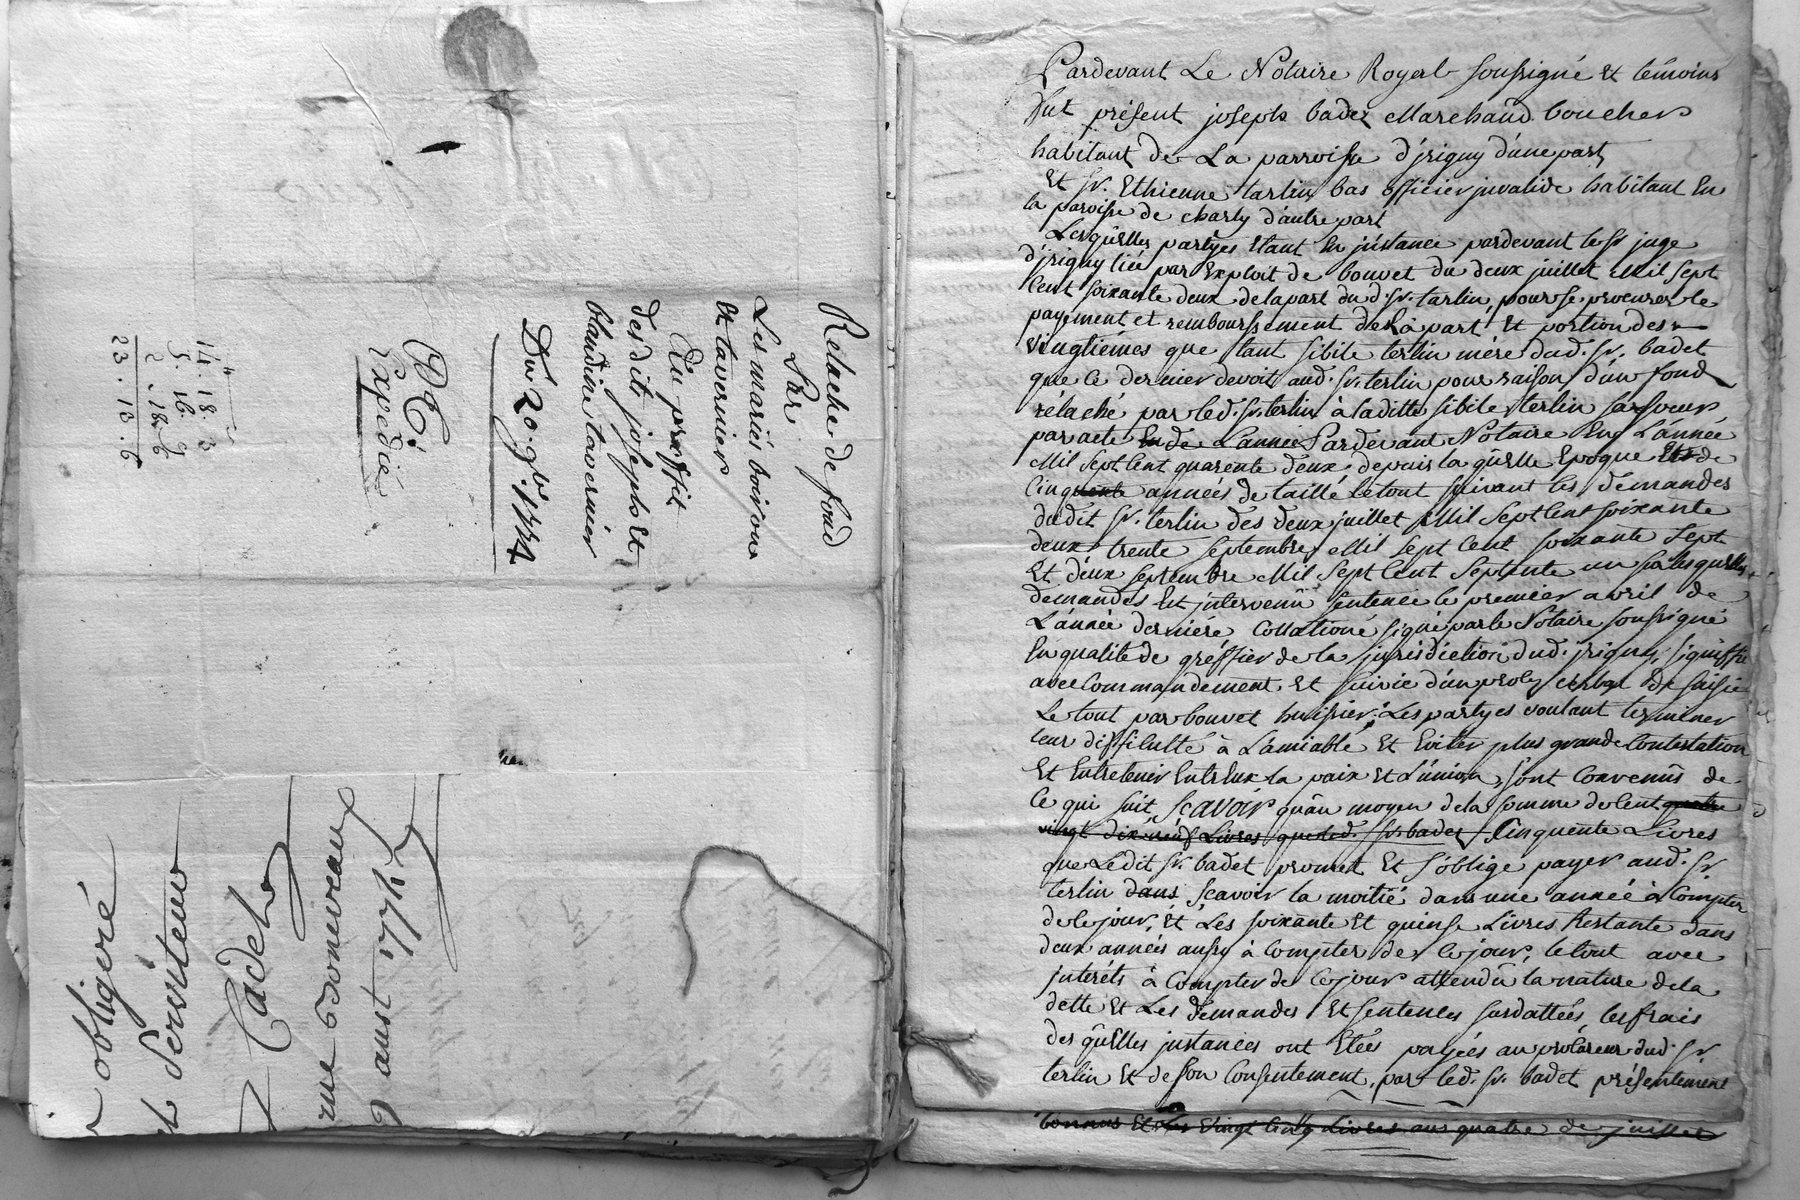 Relache de fond
Par
Les mariés boiron
et tavernier
Au proffit
desdits joseph et
blandine tavernier
Du 20. 9bre. 1774
Expedié
14. 18. 3
5. 16. 9
2. 18. 6
23. 13. 6
obligeré
et Serviteur
Cadet
rue Bonneveaux
9 aoust 1774
Pardevant Le Notaire Royal soussigné et témoins
fut présent joseph badez Marchand boucher
habitant de La parroisse d'jrigny d'une part
Et Sr. Ethienne tarlin bas officier jnvalide habitant En
la paroisse de charly d'autre part
Lesqûelles partyes Etant En jnstance pardevant le Sr juge
d'jrigny liée par Exploit de bouvet du deux juillet Mil Sept
Cent soixante deux de la part du d. Sr. tarlin, pour se procurer le
payement et remboursement de La part Et portion des
vingtiémes que tant sibile terlin mére dud. Sr. badet
que ce dernier devoit aud. Sr. terlin pour raison d'un fond
rélaché par led. Sr. terlin à laditte sibile terlin sa soeur
par acte En de L'année Pardevant Notaire En L'année
Mil Sept Cent quarente deux depuis la qûelle Epoque Et de
Cinquente années de taillé Le tout suivant les démandes
dudit Sr. terlin des deux juillet Mil Sept Cent soixante
deux trente septembre Mil Sept Cent soixante Sept
Et deux septembre Mil Sept Cent Septente un sur lesquelles
démandes Est jntervenû sentence le premier avril de
L'année derniére Collationé signé par le Notaire soussigné
En qualité de gréffier de la jurisdiction dud. jrigny, signiffié
avec Commandement et suivie d'un verbal de saisie
Le tout par bouvet huissier; Les partyes voulant terminer
leur difficulté à L'amiable Et Eviter plus grande Contestation
Et Entretenir Entr'eux la paix Et L'union, sont Convenûs de
Ce qui suit, Scavoir qu'au moyen de la somme de Cent quatre
vingt dix neuf Livres que led. Sr. badet Cinquente Livres
que Ledit Sr. badet promet Et s'oblige payer aud. Sr.
terlin dans scavoir la moitié dans une année à Compter
de ce jour, Et Les soixante Et quinse Livres Restante dans
deux années aussy à Compter de Ce jour, le tout avec
jnteréts à Compter de Ce jour attendû la nature de la
dette Et Les demandes Et sentences susdattées, les frais
des qûelles jnstances ont Etés payées au procureur dud. Sr.
terlin Et de son Consentement, par led. Sr. badet présentement
Et Les Vingt Cinq Livres aux quatre de juillet